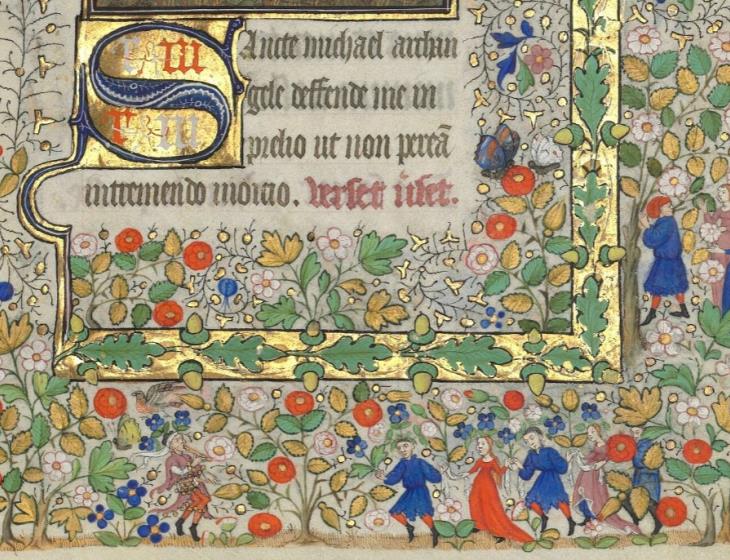 SAncte michael archan
gele deffende me in
prelio ut non pereã
intremendo iudicio. verset